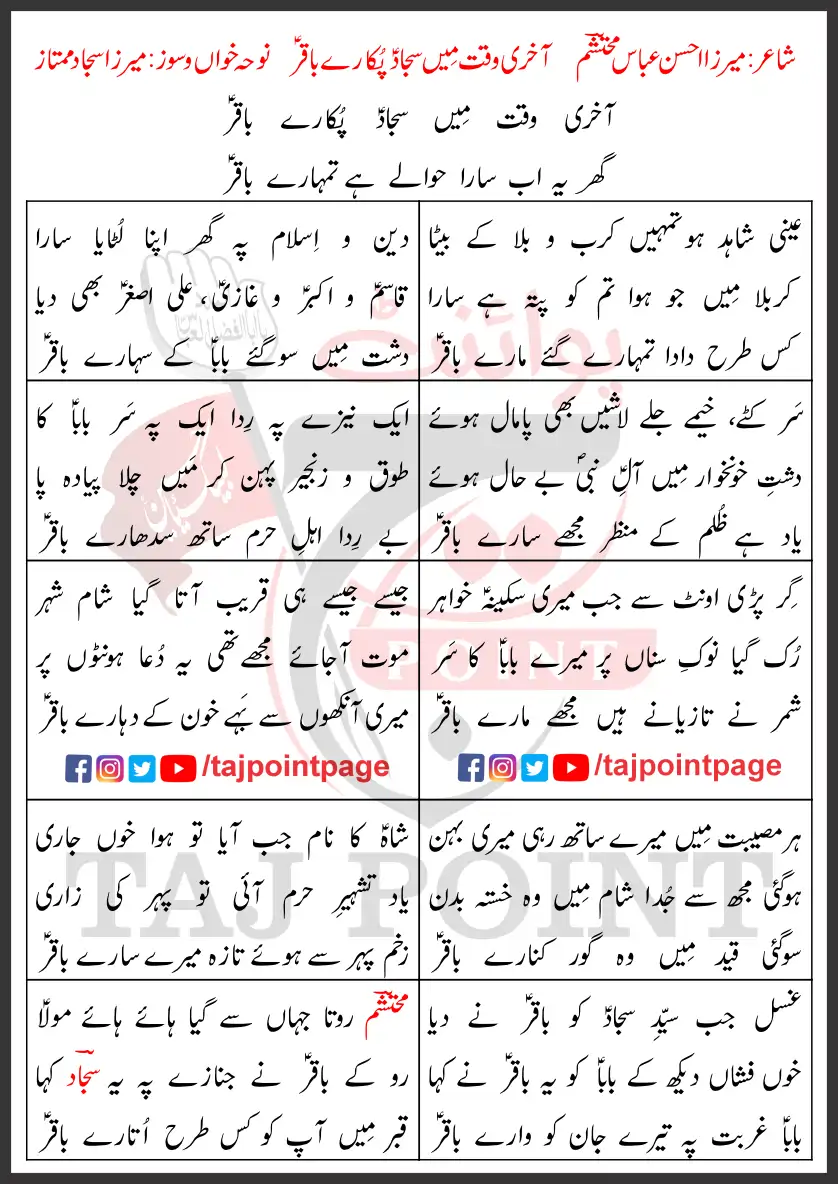 شاعر: میرزا احسن عباس محتشمؔ آخری وقت مِیں سجادؑ پُکارے باقرؑ نوحہ خواں و سوز: میرزا سجاد ممتاز
آخری وقت مِیں سجادؑ پُکارے باقرؑ
گھر یہ اب سارا حوالے ہے تمہارے باقرؑ
عینی شاہد ہو تمہیں کرب و بلا کے بیٹا
کربلا مِیں جو ہوا تم کو پتہ ہے سارا
کس طرح دادا تمہارے گئے مارے باقرؑ
دین و اِسلام پہ گھر اپنا لُٹایا سارا
قاسمؑ و اکبرؑ و غازیؑ، علی اصغرؑ بھی دیا
دشت مِیں سوگئے باباؑ کے سہارے باقرؑ
سَر کٹے، خیمے جلے لاشیں بھی پامال ہوئے
دشتِ خونخوار مِیں آلِ نبیؐ بے حال ہوئے
یاد ہے ظُلم کے منظر مجھے سارے باقرؑ
ایک نیزے پہ رِدا ایک پہ سَر باباؑ کا
طوق و زنجیر پہن کر مَیں چلا پیادہ پا
بے رِدا اہلِ حرم ساتھ سدھارے باقرؑ
گِر پڑی اونٹ سے جب میری سکینہؑ خواہر
رُک گیا نوکِ سناں پر میرے باباؑ کا سَر
شمر نے تازیانے ہیں مجھے مارے باقرؑ
/tajpointpage
جیسے جیسے ہی قریب آتا گیا شام شہر
موت آجائے مجھے تھی یہ دُعا ہونٹوں پر
میری آنکھوں سے بَہے خون کے دہارے باقرؑ
/tajpointpage
ہر مصیبت مِیں میرے ساتھ رہی میری بہن
ہوگئی مجھ سے جُدا شام مِیں وہ خستہ بدن
سوگئی قید مِیں وہ گور کنارے باقرؑ
شاہؑ کا نام جب آیا تو ہوا خوں جاری
یاد تشہیرِ حرم آئی تو پہر کی زاری
زخم پہر سے ہوئے تازہ میرے سارے باقرؑ
غسل جب سیّدِ سجادؑ کو باقرؑ نے دیا
خوں فشاں دیکھ کے باباؑ کو یہ باقرؑ نے کہا
باباؑ غربت پہ تیرے جان کو وارے باقرؑ
محتشمؔ روتا جہاں سے گیا ہائے ہائے مولاؑ
رو کے باقرؑ نے جنازے پہ یہ سجادؔ کہا
قبر مِیں آپ کو کس طرح اُتارے باقرؑ
پوائنٹ
POINT
TAJ POINT